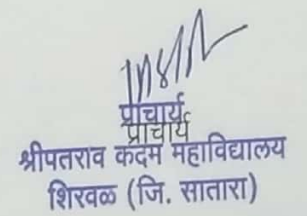 प्राचार्य
प्राचार्य
श्रीपतराव कदम महाविद्यालय
शिरवळ (जि. सातारा)